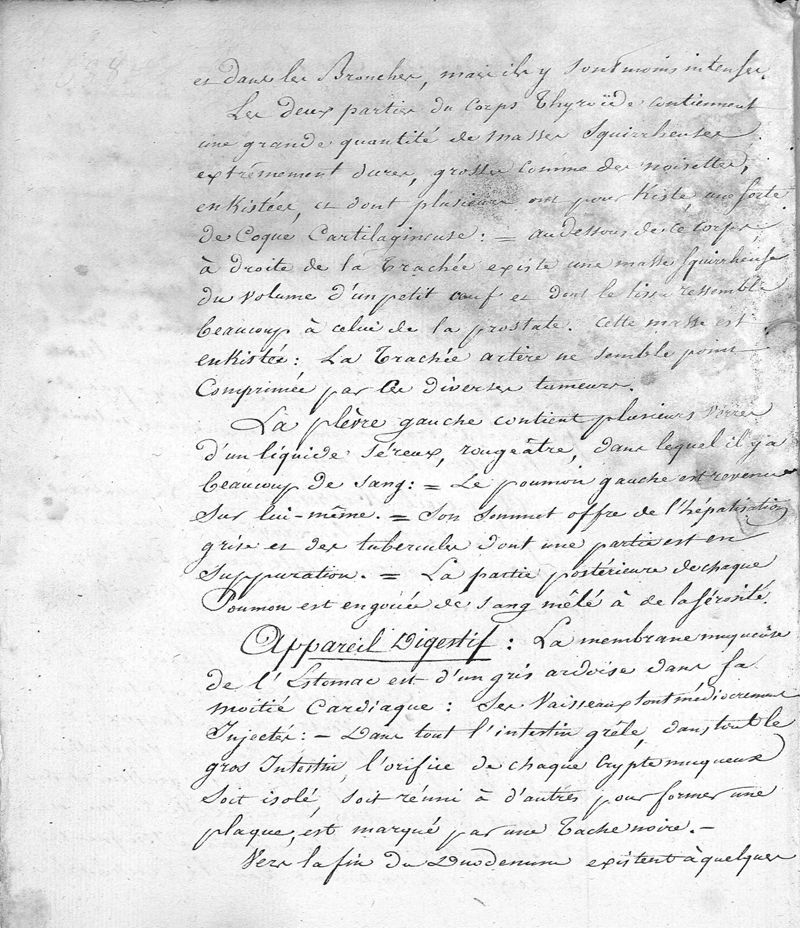 et dans les Bronches, mais ils y sont moins intenses.
Les deux parties du Corps Thyroïde contiennent
une grande quantité de masses Squirrheuses
extrêmement dures, grosses comme des noisettes,
enkistées, et dont plusieurs ont pour Kiste, une forte
de Coque Cartilagineuse: = au dessous de ce corps,
à droite de la Trachée existe une masse Squirrheuse
du volume d'un petit œuf et dont le tissu ressemble
beaucoup à celui de la prostate. Cette masse est
enkistée: La Trachée artère ne semble point
Comprimée par ces diverses tumeurs.
La plèvre gauche contient plusieurs verres
d'un liquide Séreux, rougeâtre, dans lequel il y a
beaucoup de sang: = Le poumon gauche est revenu
sur lui-même. = Son Sommet offre de l'hépatisation
grise et des tubercules dont une partie est en
Suppuration. = La partie postérieure de chaque
Poumon est engouée de sang mêlé à de la sérosité.
Appareil Digestif: La membrane muqueuse
de l'Estomac est d'un gris ardoise dans sa
moitié Cardiaque: Ses Vaisseaux sont médiocrement
Injectés: - Dans tout l'intestin grêle, dans tout le
gros Intestin, l'orifice de chaque Crypte muqueux
soit isolé, soit réuni à d'autres pour former une
plaque, est marqué par une Tache noire. -
Vers la fin du Duodenum existent à quelques